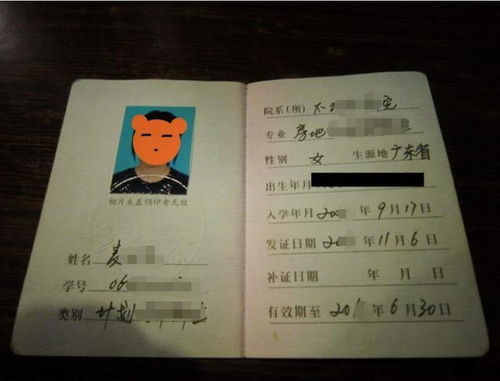 相片未盖钢印者无效
姓名 麦
学号 06
类别 计划
院系(所)
专业 房地
性别 女 生源地 广东省
出生年月
入学年月 20 年 9 月 17 日
发证日期 20 年 11 月 6 日
补证日期 年 月 日
有效期至 20 年 6 月 30 日